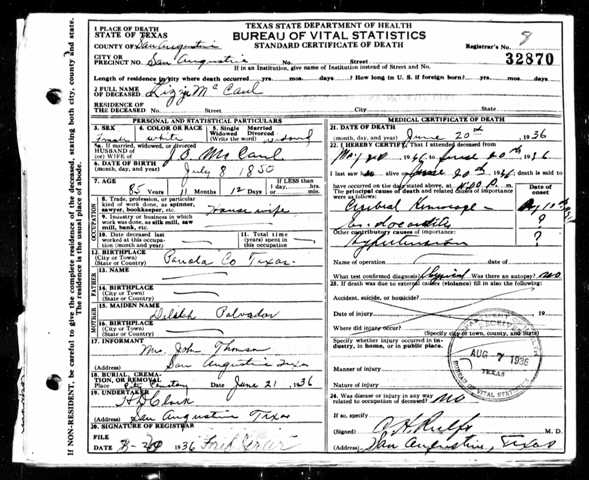 TEXAS STATE DEPARTMENT OF HEALTH
BUREAU OF VITAL STATISTICS
STANDARD CERTIFICATE OF DEATH
1 PLACE OF DEATH
STATE OF TEXAS
COUNTY OF San Augustine
Registrar's No. 8
CITY OR
PRECINCT NO. San Augustine No. Street
32870
If in an Institution, give name of Institution instead of Street and No.
Length of residence in city where death occurred yrs. mos. days. ? How long in U. S. if foreign born? yrs. mos. days.
2 FULL NAME
OF DECEASED Lizzie McCaul
RESIDENCE OF
THE DECEASED No. Street City State
PERSONAL AND STATISTICAL PARTICULARS
3. SEX 4. COLOR OR RACE 5. Single Married
Widowed Divorced
(Write the word)
female white widowed
5a. If married, widowed, or divorced
HUSBAND OF
(or) WIFE of J. O. McCaul
6. DATE OF BIRTH
(month, day, and year) July 8 1850
7. AGE
85 Years 11 Months 12 Days
If LESS than
1 day, hrs.
min.
OCCUPATION
8. Trade, profession, or particular
kind of work done, as spinner,
sawyer, bookkeeper, etc. House wife
9. Industry or business in which
work was done, as silk mill, saw
mill, bank, etc.
10. Date deceased last
worked at this occupa-
tion (month and year)
11. Total time
(years) spent in
occupation
12. BIRTHPLACE
(City or Town)
(State or County) Panola Co Texas
FATHER
13. NAME
14. BIRTHPLACE
(City or Town)
(State or County)
MOTHER
15. MAIDEN NAME
Delilah
16. BIRTHPLACE
(City or Town)
(State or County)
17. INFORMANT
Mrs. John Thomson
(Address) San Augustine Texas
18. BURIAL, CREMA-
TION, OR REMOVAL
Place City Cemetery Date June 21 1936
19. UNDERTAKER
H D Clark
(Address) San Augustine Texas
20. SIGNATURE OF REGISTRAR
FILE
DATE 1936
MEDICAL CERTIFICATE OF DEATH
21. DATE OF DEATH
(month, day, and year) June 20th 1936
22. I HEREBY CERTIFY, That I attended deceased from
May 1936 to June 20th 1936
I last saw alive on June 20th 1936, death is said to
have occurred on the date stated above, at m.
The principal cause of death and related causes of
importance were as follows:
Date of
onset
Cerebral Hemorrage
?
Other contributory causes of importance:
Hypertension ?
Name of operation Date of
What test confirmed diagnosis? Physical Was there an autopsy? no
23. If death was due to external causes (violence) fill in also the following:
Accident, suicide, or homicide?
Date of injury 19
Where did injury occur?
(Specify city or town, county, and State)
Specify whether injury occurred in in-
dustry, in home, or in public place.
Manner of injury
Nature of injury
AUG 7 1936
TEXAS
BUREAU OF VITAL STATISTICS
24. Was disease or injury in any way
related to occupation of deceased? No
If so, specify
(Signed) M. D.
(Address) San Augustine, Texas
IF NON-RESIDENT, be careful to give the complete residence of the deceased, stating both city, county and state.
This is the usual place of abode.